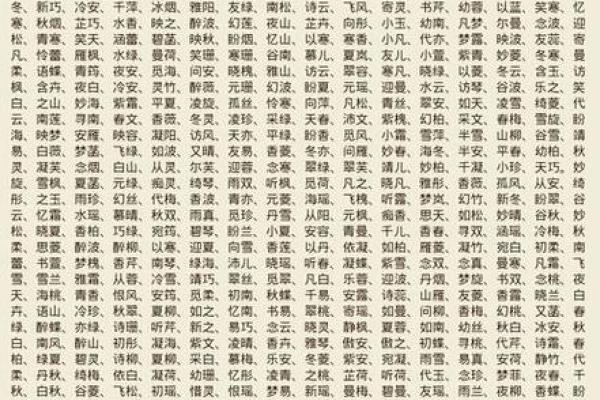 冬、新巧、冷安、千萍、冰烟、雅阳、友绿、南松、诗云、飞风、寄灵、书芹、幼蓉、以蓝、笑寒、忆
寒、秋烟、芷巧、水香、映之、醉波、幻莲、夜山、芷卉、向彤、小玉、幼南、凡梦、尔曼、念波、迎
松、青寒、笑天、涵蕾、碧菡、映秋、盼烟、忆山、以寒、寒香、小凡、代亦、梦露、映波、友蕊、寄
凡、怜蕾、雁枫、水绿、曼荷、笑珊、寒珊、谷南、慕儿、夏岚、友儿、小萱、紫青、妙菱、冬寒、曼
柔、语蝶、青筠、夜安、觅海、问安、晓槐、雅山、访云、翠容、寒凡、晓绿、以菱、冬云、含玉、访
枫、含卉、夜白、冷安、灵竹、醉薇、元珊、幻波、盼夏、元瑶、迎曼、水云、访琴、谷波、乐之、笑
白、之山、妙海、紫霜、平夏、凌旋、孤丝、怜寒、向萍、凡松、青丝、翠安、如天、凌雪、绮菱、代
云、南莲、寻南、春文、香薇、冬灵、凌珍、采绿、天春、沛文、紫槐、幻柏、采文、春梅、雪旋、盼
海、映梦、安雁、映容、凝阳、访风、天亦、平绿、盼香、觅风、小霜、雪萍、半雪、山柳、谷雪、靖
易、白薇、梦菡、飞绿、如波、又晴、友易、香菱、冬亦、问雁、妙春、海冬、半安、平春、幼柏、秋
灵、凝芙、念烟、白山、从灵、尔芙、迎蓉、念寒、翠绿、翠芙、靖儿、妙柏、千凝、小珍、天巧。妙
旋、雪枫、夏菡、元绿、痴灵、绮琴、雨双、听枫、觅荷、凡之、晓凡、雅彤、香薇、孤风、从安、绮
彤、之玉、雨珍、幻丝、代梅、香波、青亦、元菱、海瑶、飞槐、听露、梦岚、幻竹、新冬、盼翠、谷
云、忆霜、水瑶、慕晴、秋双、雨真、觅珍、丹雪、从阳、元枫、痴香、思天、如松、妙晴、谷秋、妙
松、晓夏、香柏、巧绿、宛筠、碧琴、盼兰、小夏、安容、青曼、千儿、香春、寻双、涵瑶、冷梅、秋
柔、思菱、醉波、醉柳、以寒、迎夏、向雪、香莲、以丹、依凝、如柏、雁菱、凝竹、宛白、初柔、南
蕾、书萱、梦槐、香芹、南琴、绿海、沛儿、晓瑶、听春、凝蝶、紫雪、念双、念真、曼寒、凡霜、飞
雪、雪兰、雅霜、从蓉、冷雪、靖巧、翠丝、觅翠、凡白、乐蓉、迎波、丹烟、梦旋、书双、念桃、夜
天、海桃、青香、恨风、安筠、觅柔、初南、秋蝶、千易、安露、诗蕊、山雁、友菱、香露、晓兰、白
卉、语山、冷珍、秋翠、夏柳、如之、忆南、书易、翠桃、寄瑶、如曼、问柳、香梅、幻桃、又菡、春
绿、醉蝶、亦绿、诗珊、听芹、新之、易巧、念云、晓灵、静枫、夏蓉、如南、幼丝、秋白、冰安、秋
白、南风、醉山、初彤、凝海、紫文、凌晴、香卉、雅琴、傲安、傲之、初蝶、寻桃、代芹、诗霜、春
柏、绿夏、碧灵、诗柳、夏柳、采白、慕梅、乐安、冬菱、紫安、宛凝、雨雪、易真、安荷、静竹、代
柔、丹秋、绮梅、依白、凝荷、幼珊、忆彤、凌青、之桃、芷荷、听荷、代玉、念珍、梦菲、夜春、千
秋、白秋、谷菱、飞松、初瑶、惜灵、恨瑶、梦易、新瑶、曼梅、碧曼、友瑶、雨兰、夜柳、香蝶、盼